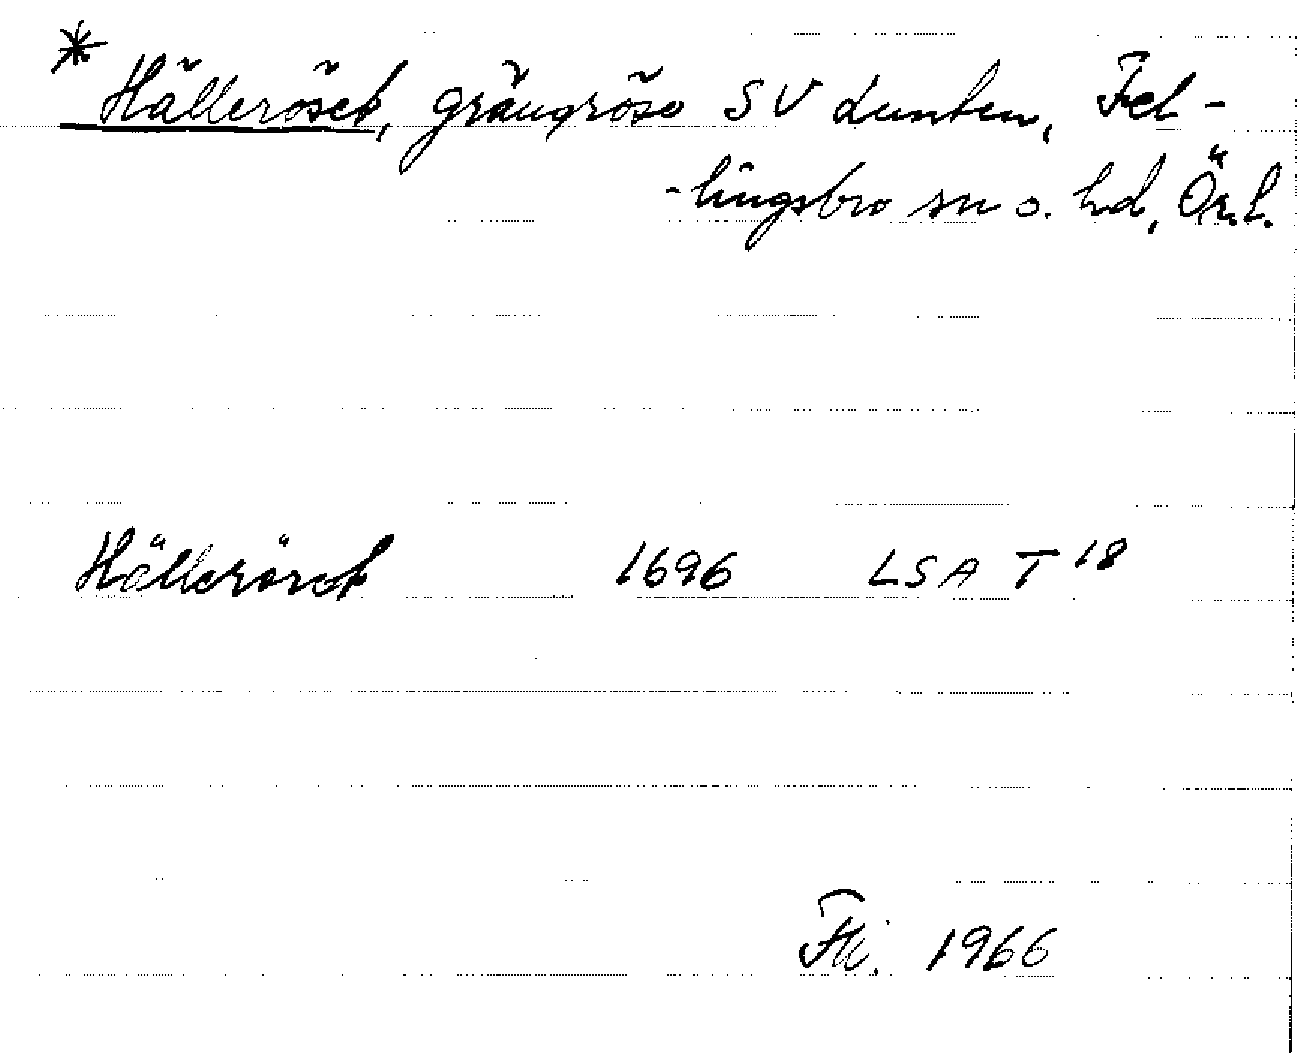 * Hälleröset, grängröse SV Lunten, Fel-
-lingsbro sn o. hd, Ör. l.
Hälleröset 1696 LSA T 18
1966